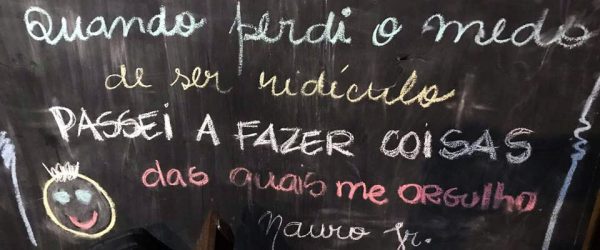 Quando perdi o medo
de ser ridículo
PASSEI A FAZER COISAS
das quais me ORGULHO
Mauro Jr.